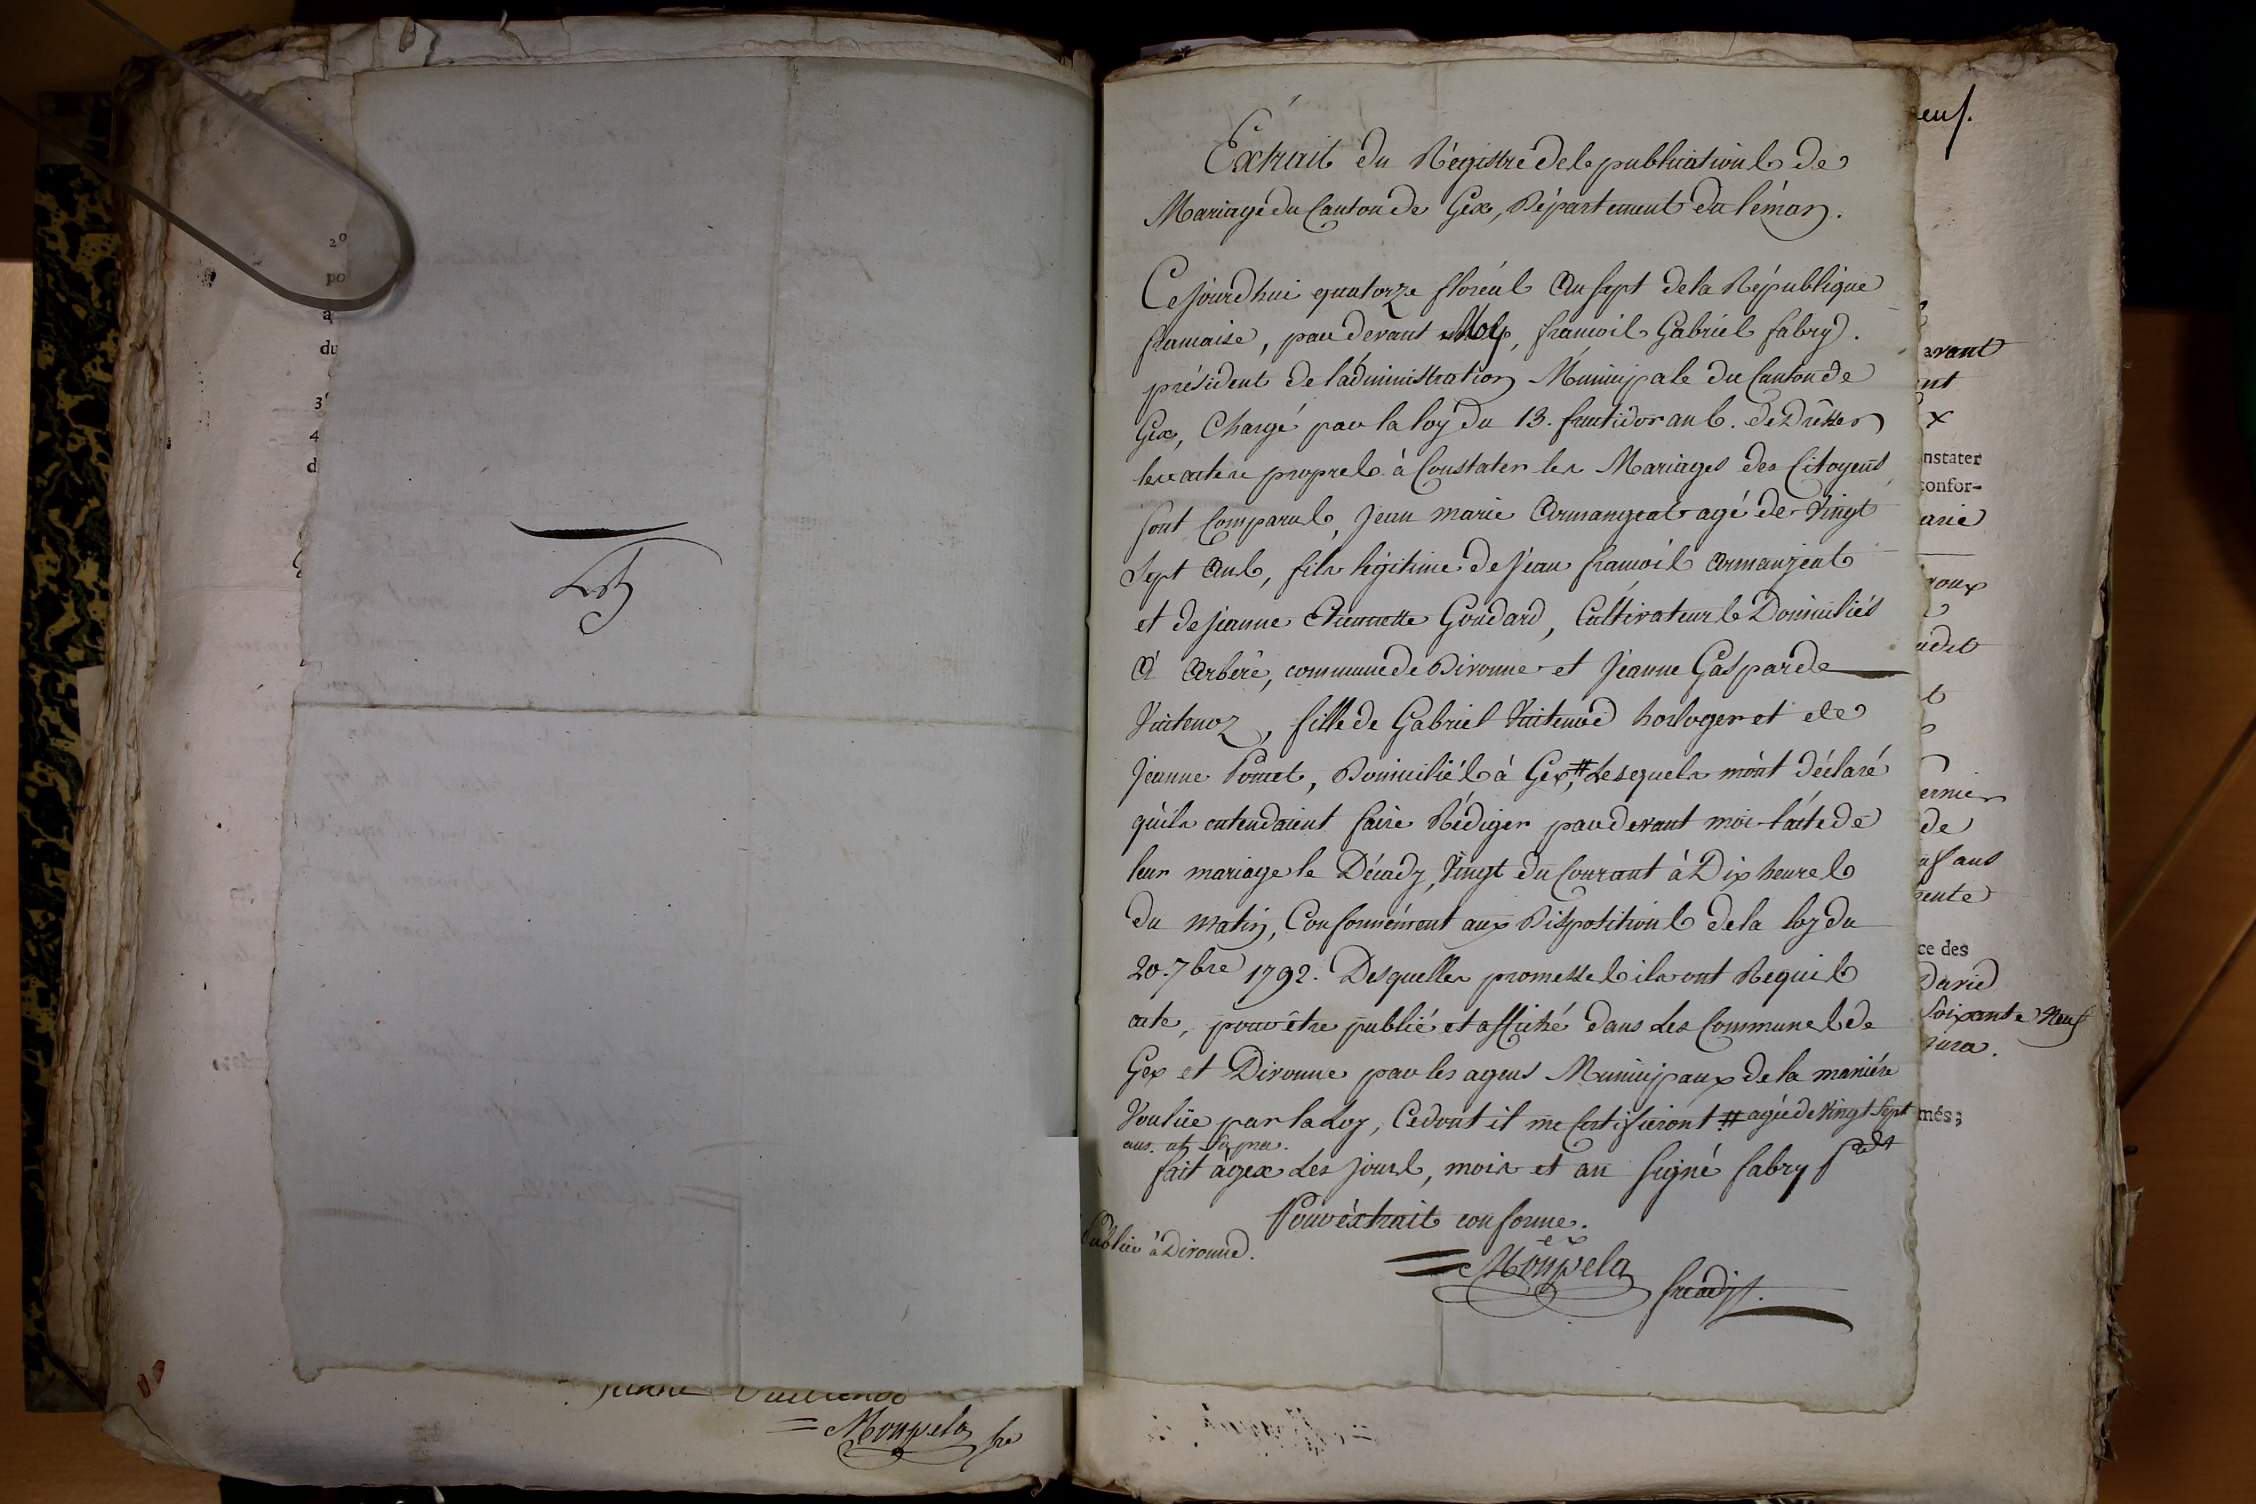 2º
po
a
du
3º
4
d
Extrait du Régistre des publications de
Mariage du Canton de Gex, Département du léman.
Cejourdhui quatorze floréal an sept de la République
francaise, par devant Moy, francois Gabriel fabry.
président de l'administration Municipale du Canton de
Gex, Chargé par la loy du 13. fructidor an 6. de Dresser
les actes propres à Constater les Mariages des Citoyens
sont Comparus, Jean marie Armangeat agé de Vingt
Sept Ans, fils légitime de Jean francois Armangeat
et de Jeanne Etiennette Goudard, Cultivateurs Domiciliés
à Arbère, commune de Divonne et Jeanne Gasparde
Vuitenoz, fille de Gabriel Vuitenod horloger et de
Jeanne Poncet, Domiciliés à Gex,# Lesquels m'ont déclaré
qu'ils entendaient faire Rédiger par devant moi l'acte de
leur mariage le Décady, Vingt du Courant à Dix heures
du matin, Conformément aux Dispositions de la loy du
20. 7bre 1792. Desquelles promesses ils ont Requis
acte, pour être publié et affiché dans Les Communes de
Gex et Divonne par les agens Municipaux de la manière
Voulüe par la Loy, Cedont il me Certifieront # agée de Vingt Sept
ans.
fait à gex Les Jours, mois et an signé fabry Pdt
Pour extrait conforme.
Publié à Divonne.
Monpela
eus.
avant
nt
x
nstater
confor-
arie
roux
adet
ernier
de
ans
rente
ce des
David
Soixante Neuf
Jura.
més;
Monpela